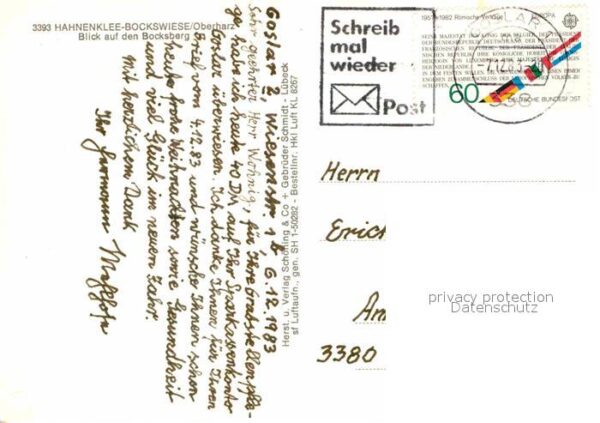 3393 HAHNENKLEE-BOCKSWIESE/Oberharz
Blick auf den Bocksberg
Goslar 2 Wiesenstr. 1b 6.12.1983
Sehr geehrter Herr
für Ihre Grabstellenpfle-
ge habe ich heute 40 DM auf Ihr Sparkassenkonto
Goslar überwiesen. Ich danke Ihnen für Ihren
Brief v. 4.12.83 und wünsche Ihnen schon
heute frohe Weihnachten sowie Gesundheit
und viel Glück im neuen Jahr.
Mit herzlichem Dank
Ihr Hermann
Herst. u. Verlag Schöning & Co + Gebrüder Schmidt - Lübeck
sf Luftaufn., gen. SH 1-50282 - Bestellnr. Hkl Luft KL 8267
Schreib
mal
wieder
Post
1957-1982 Römische Verträge
EUROPA
60
DEUTSCHE BUNDESPOST
Herrn
Erich
An
3380
privacy protection
Datenschutz